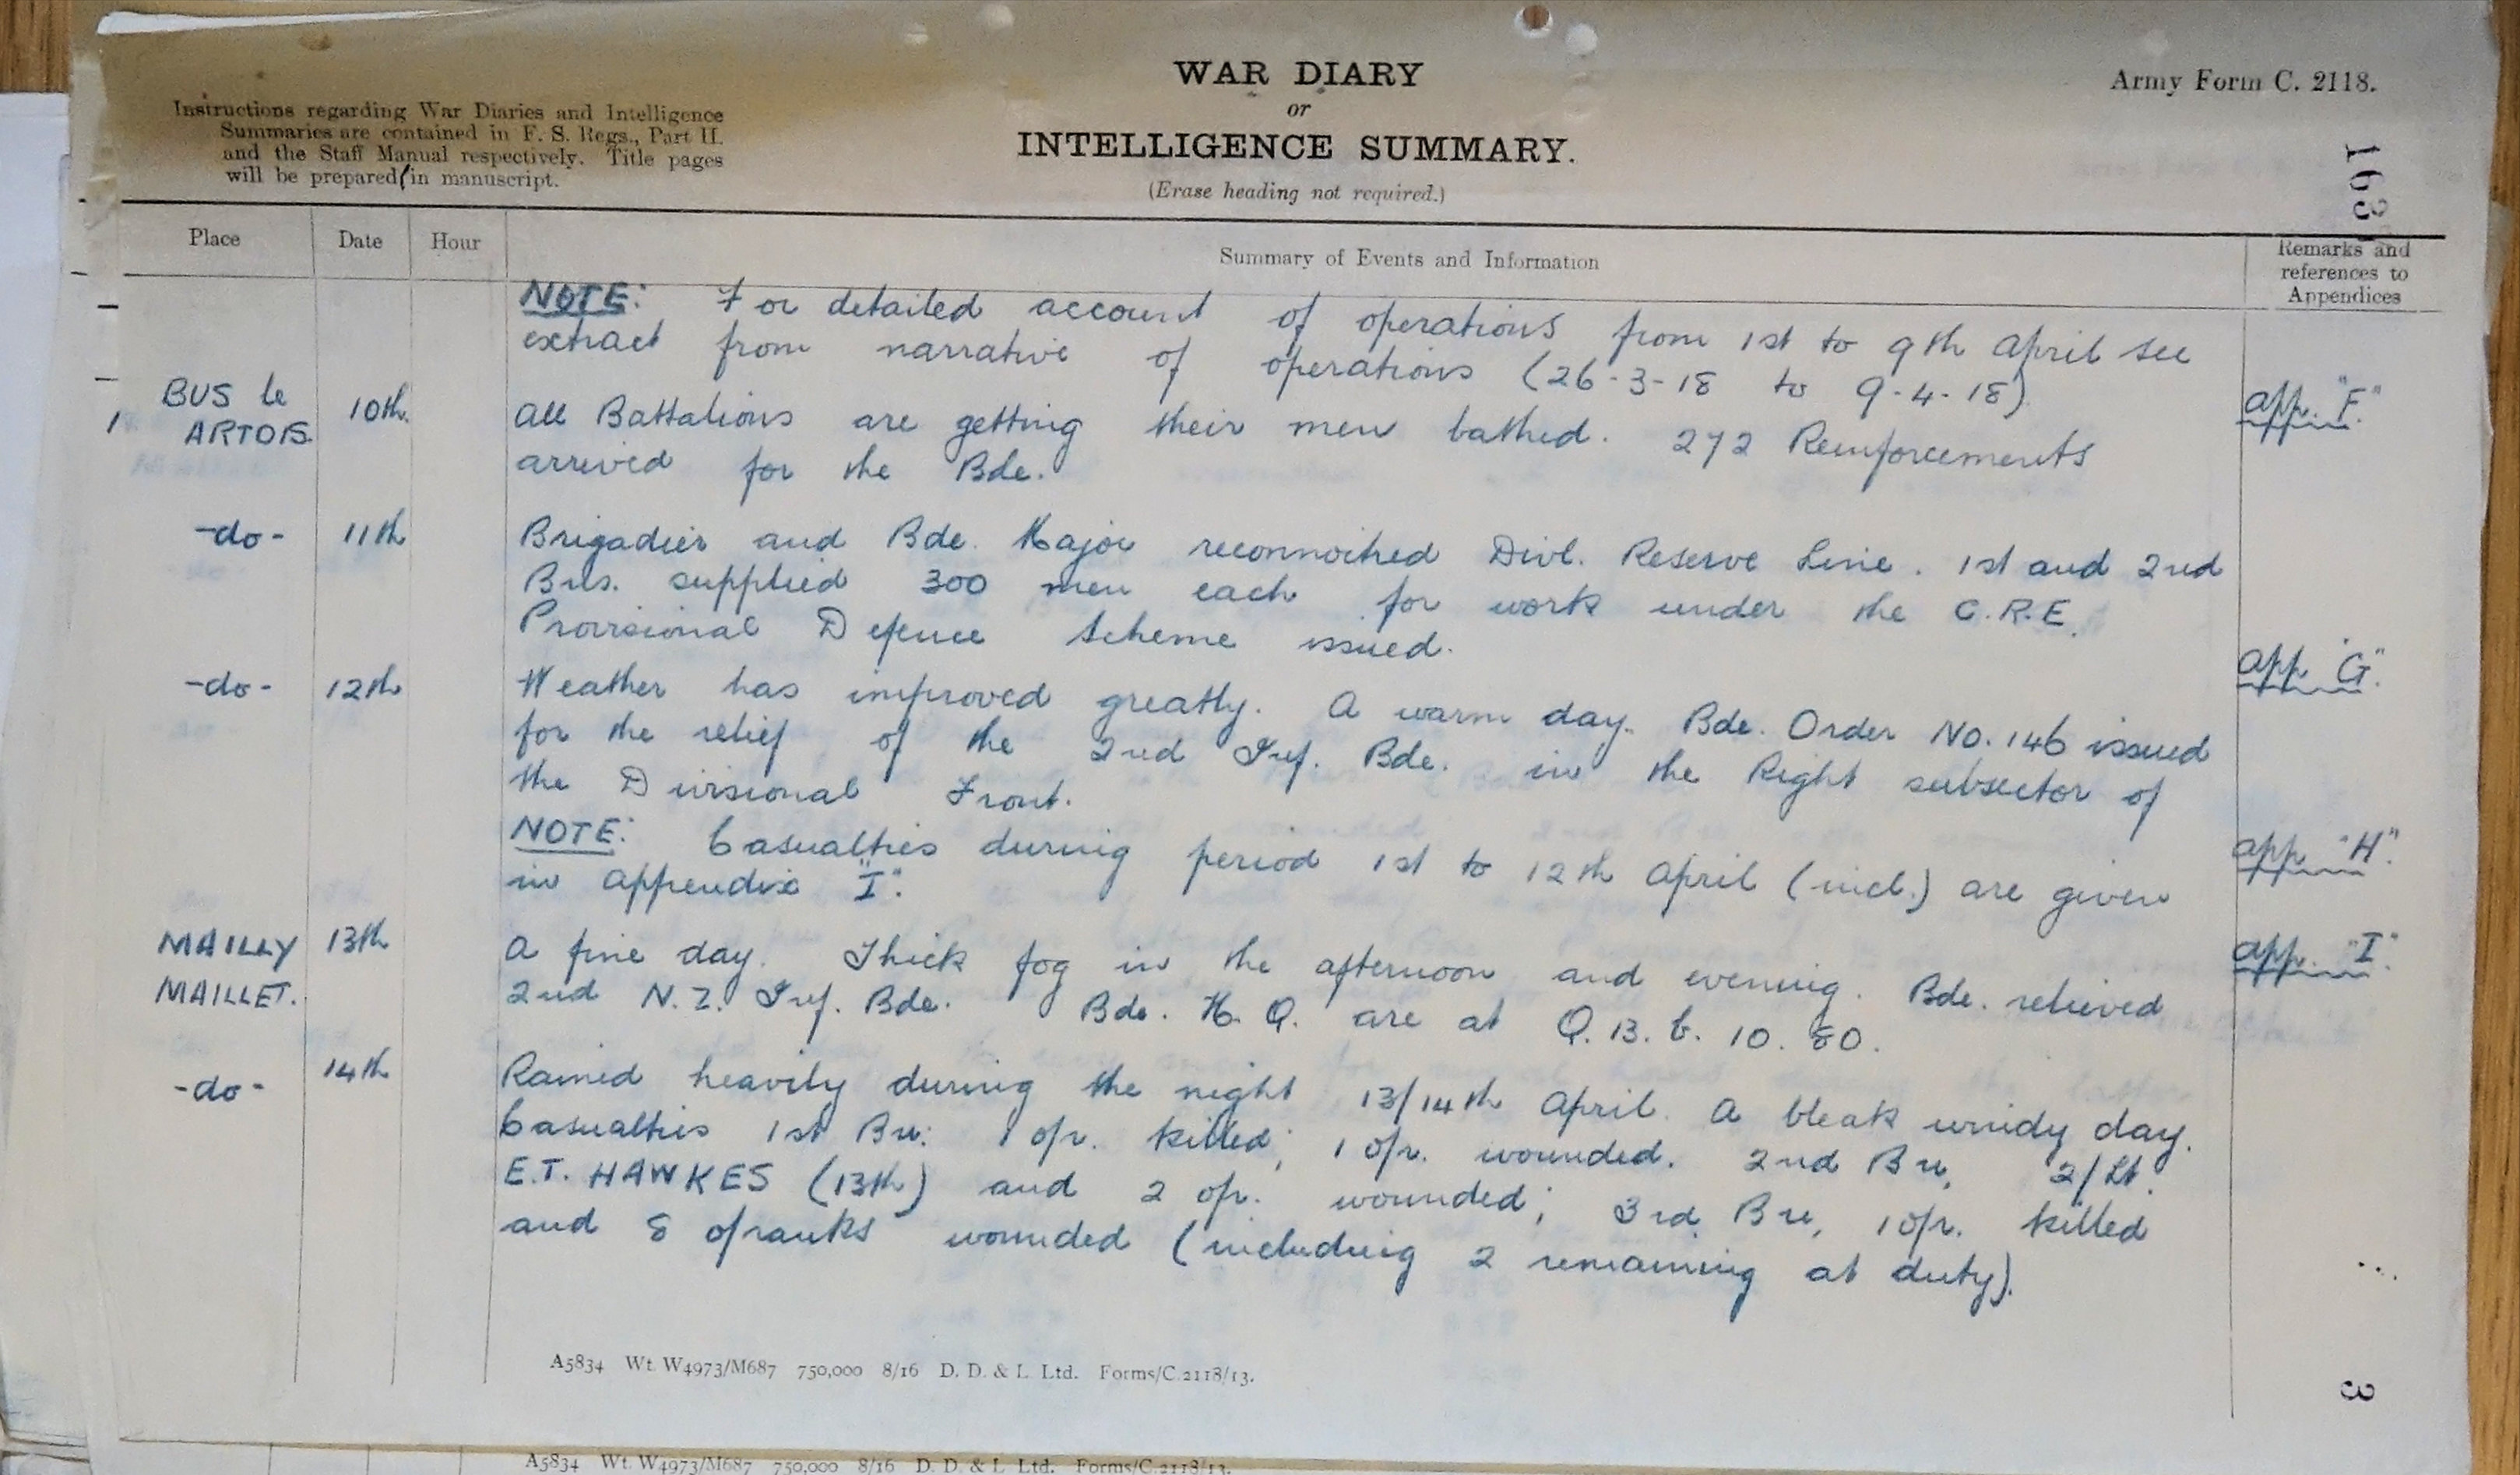 WAR DIARY
or
INTELLIGENCE SUMMARY.
(Erase heading not required.)
Army Form C. 2118.
Instructions regarding War Diaries and Intelligence
Summaries are contained in F. S. Regs., Part II.
and the Staff Manual respectively. Title pages
will be prepared in manuscript.
163
Place Date Hour Summary of Events and Information Remarks and references to Appendices
NOTE: For detailed account of operations from 1st to 9th April see
extract from narrative of operations (26-3-18 to 9-4-18) app. "F."
BUS le ARTOIS. 10th. All Battalions are getting their men bathed. 272 Reinforcements
arrived for the Bde.
-do- 11th Brigadier and Bde. Major reconnoitred Divl. Reserve Line. 1st and 2nd
Bns. supplied 300 men each for work under the C.R.E.
Provisional Defence Scheme issued. app "G".
-do- 12th Weather has improved greatly. A warm day. Bde. Order No. 146 issued
for the relief of the 2nd Inf. Bde. in the Right subsector of
the Divisional Front. app "H".
NOTE: Casualties during period 1st to 12th April (incl.) are given
in appendix "I". app. "I".
MAILLY MAILLET. 13th A fine day. Thick fog in the afternoon and evening. Bde. relieved
2nd N.Z. Inf. Bde. Bde. H.Q. are at Q.13.b.10.80.
-do- 14th Rained heavily during the night 13/14th April. A bleak windy day.
Casualties 1st Bn: 1 o/r. killed; 1 o/r. wounded. 2nd Bn, 2/Lt.
E.T. HAWKES (13th) and 2 o/r. wounded; 3rd Bn, 1 o/r. killed
and 8 o/ranks wounded (including 2 remaining at duty).
A5834 Wt. W4973/M687 750,000 8/16 D. D. & L. Ltd. Forms/C.2118/13.
3
A5834 Wt. W4973/M687 750,000 8/16 D. D. & L. Ltd. Forms/C.2118/13.